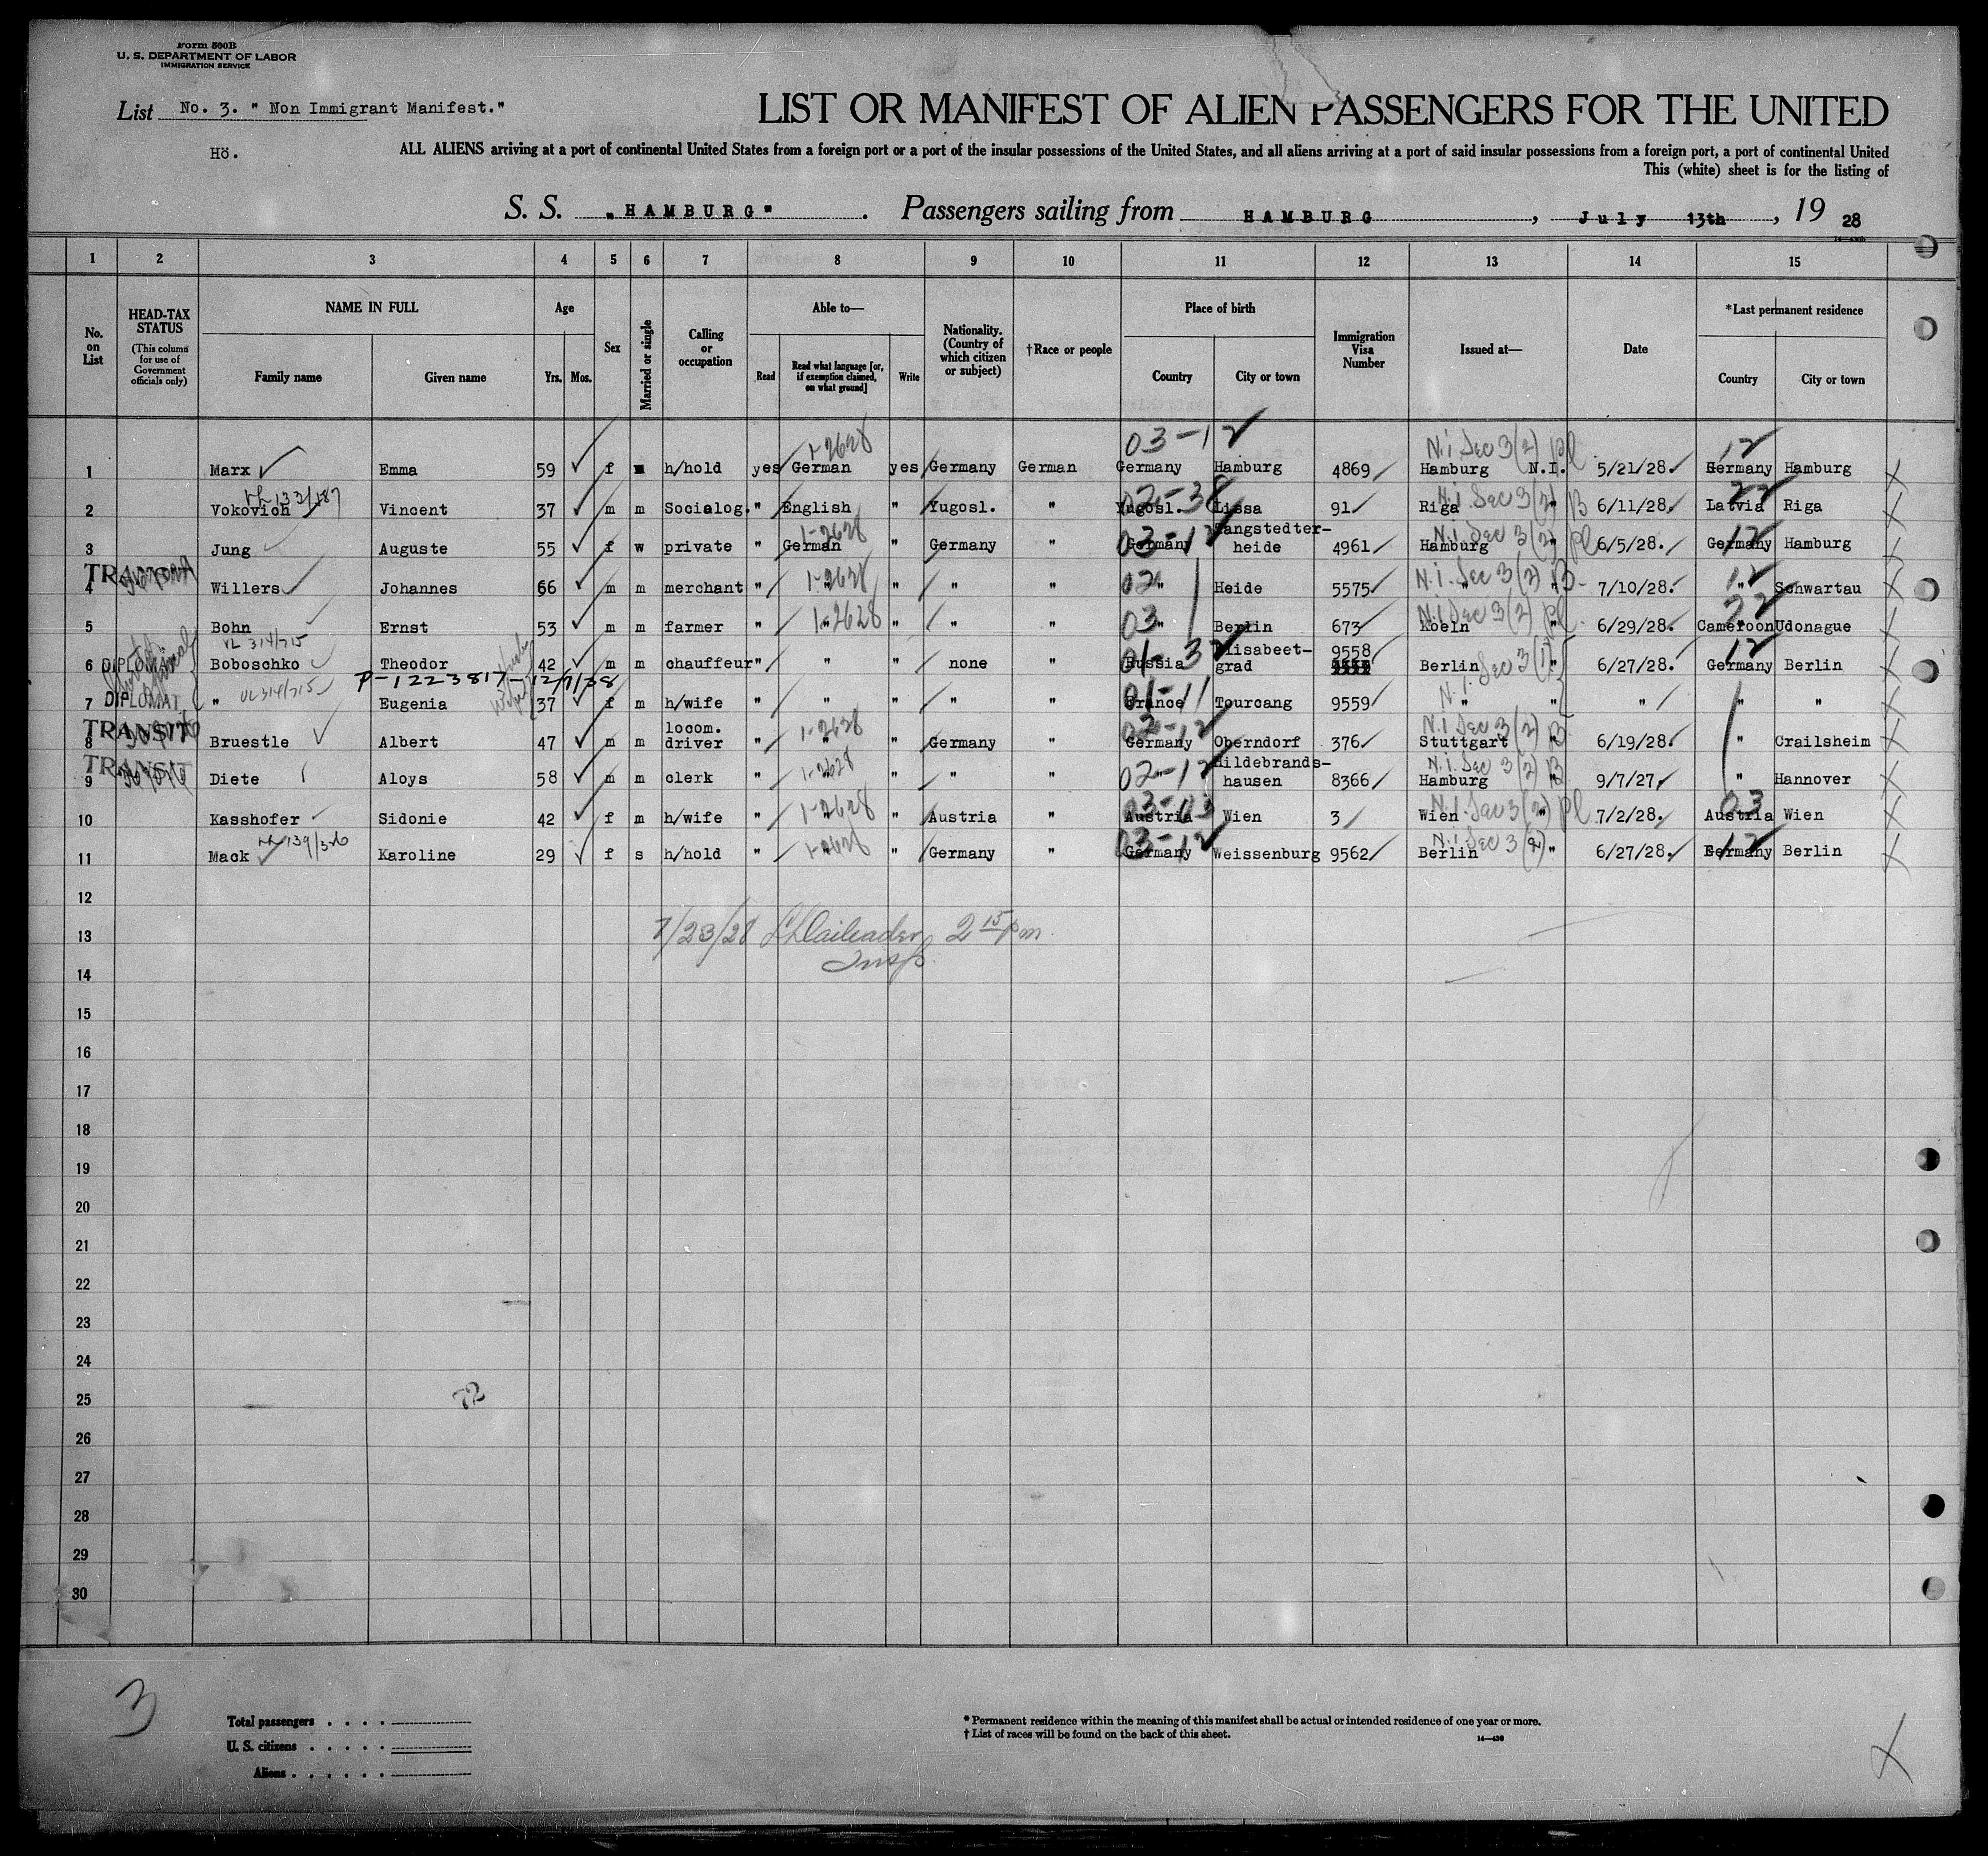 Form 500B
U. S. DEPARTMENT OF LABOR
IMMIGRATION SERVICE
List No. 3. " Non Immigrant Manifest."
Hö.
LIST OR MANIFEST OF ALIEN PASSENGERS FOR THE UNITED
ALL ALIENS arriving at a port of continental United States from a foreign port or a port of the insular possessions of the United States, and all aliens arriving at a port of said insular possessions from a foreign port, a port of continental United
This (white) sheet is for the listing of
S. S. "HAMBURG". Passengers sailing from HAMBURG, July 13th, 1928
1 2 3 4 5 6 7 8 9 10 11 12 13 14 15
No. on List
HEAD-TAX STATUS
(This column for use of Government officials only)
NAME IN FULL
Family name Given name
Age
Yrs. Mos.
Sex
Married or single
Calling or occupation
Able to—
Read
Read what language [or, if exemption claimed, on what ground]
Write
Nationality. (Country of which citizen or subject)
†Race or people
Place of birth
Country City or town
Immigration Visa Number
Issued at—
Date
*Last permanent residence
Country City or town
03-12 N.i Sec 3(2) Pl 12
1-2628
1 Marx Emma 59 f h/hold yes German yes Germany German Germany Hamburg 4869 Hamburg N.I. 5/21/28. Germany Hamburg
133/187 02-38 N.i Sec 3(2) B 22
2 Vokovich Vincent 37 m m Socialog. " English " Yugosl. " Yugosl. Lissa 91 Riga " 6/11/28. Latvia Riga
1-2628 03-12 N.i Sec 3(2) Pl 12
3 Jung Auguste 55 f w private " German " Germany " Germany Rangstedter-heide 4961 Hamburg " 6/5/28. Germany Hamburg
TRANSIT
1-2628 02 N.i. Sec 3(2) B 12
4 Willers Johannes 66 m m merchant " " " " " " Heide 5575 " " 7/10/28. " Schwartau
1-2628 03 N.i Sec 3(2) Pl 22
5 Bohn Ernst 53 m m farmer " " " " " " Berlin 673 Koeln " 6/29/28. Cameroon Udonague
VL 314/715 01-32 Sec 3(1) 12
6 DIPLOMAT Boboschko Theodor 42 m m chauffeur " " " none " Russia Elisabeet-grad 9558 Berlin " 6/27/28. Germany Berlin
P-1223817-12/7/38
VL 314/715 01-11 N.i.
7 DIPLOMAT " Eugenia 37 f m h/wife " " " " " France Tourcang 9559 " " " " "
TRANSIT
1-2628 02-12 N.i Sec 3(2) B
8 Bruestle Albert 47 m m locom. driver " " " Germany " Germany Oberndorf 376 Stuttgart " 6/19/28. " Crailsheim
TRANSIT
1-2628 02-12 N.i. Sec 3(2) B
9 Diete Aloys 58 m m clerk " " " " " " Hildebrands-hausen 8366 Hamburg " 9/7/27 " Hannover
1-2628 03-03 N.i. Sec 3(2) Pl 03
10 Kasshofer Sidonie 42 f m h/wife " " " Austria " Austria Wien 3 Wien " 7/2/28. Austria Wien
1-2628 03-12 N.i. Sec 3(2) 12
11 Mack Karoline 29 f s h/hold " " " Germany " Germany Weissenburg 9562 Berlin " 6/27/28. Germany Berlin
12
13 7/23/28 2 15 pm.
Insp.
14
15
16
17
18
19
20
21
22
23
24
25 72
26
27
28
29
30
3
Total passengers . . . .
U. S. citizens . . . . .
Aliens . . . . . .
*Permanent residence within the meaning of this manifest shall be actual or intended residence of one year or more.
†List of races will be found on the back of this sheet.
14—430
X